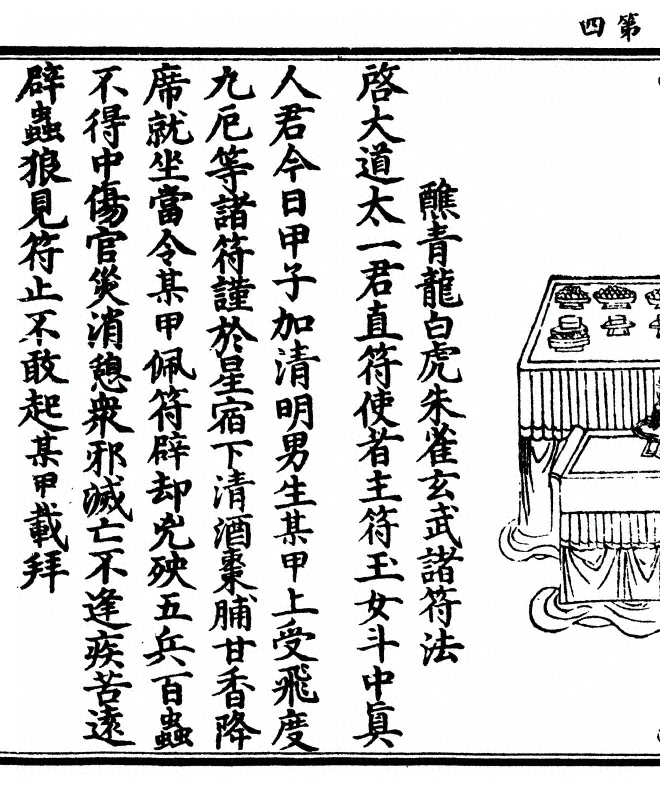 第四
醮青龍白虎朱雀玄武諸符法
啓大道太一君直符使者主符玉女斗中眞
人君今日甲子加清明男生某甲上受飛度
九厄等諸符謹於星宿下清酒棗脯甘香降
席就坐當令某甲佩符辟却兇殃五兵百蟲
不得中傷官災消憩衆邪滅亡不逢疾苦遠
辟蟲狼見符止不敢起某甲載拜